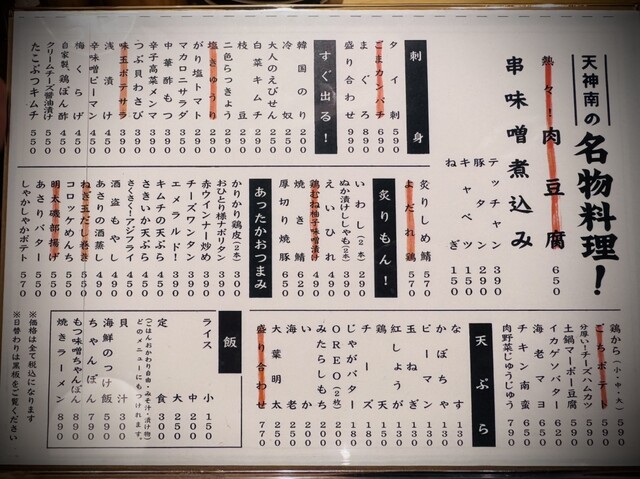 天神南の名物料理！
熱々！肉豆腐 650
串味噌煮込み
テッチャン 390
豚タン 290
キャベツ 150
ねぎ 150
刺身
タイ刺 590
ごまカンパチ 690
まぐろ 890
盛り合わせ 990
すぐ出る！
韓国のり 200
冷奴 250
大人のえびせん 250
白菜キムチ 290
枝豆 290
二色らっきょう 290
塩きゅうり 290
がり塩トマト 290
マカロニサラダ 350
中華酢もつ 390
辛子高菜メンマ 390
つぶ貝わさび 390
味玉ポテサラ 390
浅漬け 450
辛味噌ピーマン 450
梅くらげ 450
自家製、鶏ぽん酢 450
クリームチーズ醤油漬け 550
たこぶつキムチ 550
炙りもん！
炙りしめ鯖 570
よだれ鶏 570
いわし（2本） 290
ぬか漬けししゃも（2本） 390
えいひれ 490
鶏むね柚子味噌漬け 490
焼き鯖 620
厚切り焼豚 650
あったかおつまみ
かりかり鶏皮（2本） 390
おひとり様ナポリタン 390
赤ウインナー炒め 390
チーズワンタン 390
エメラルド！ 390
キムチの天ぷら 450
さきいか天ぷら 450
さくさく！アジフライ 450
酒盗もやし 490
あさりの酒蒸し 490
ねぎ玉だし巻き 550
コロッケめんち 550
明太磯部揚げ 550
あさりバター 550
しゃかしゃかポテト 570
鶏から（小・中・大）
ごちポテト 590
分厚い！チーズハムカツ 590
土鍋マーボー豆腐 590
イカゲソバター 620
海老マヨ 650
チキン南蛮 690
肉野菜じゅうじゅう 790
天ぷら
なす 130
かぼちゃ 130
ピーマン 130
玉ねぎ 130
紅しょうが 130
ちく天 150
チーズ 180
じゃがバター 180
OREO（2枚） 200
みたらしもち 200
いか 200
海老 200
大葉明太 250
盛り合わせ 770
飯
ライス
小 150
中 200
大 250
定食 300
（ごはんおかわり自由・みそ汁・漬け物）
どのメニューにもつけれます。
貝汁 300
海鮮のつけ飯 590
ちゃんぽん 790
もつ味噌ちゃんぽん 890
焼きラーメン 890
※価格は全て税込になります
※日替わりは黒板をご覧ください